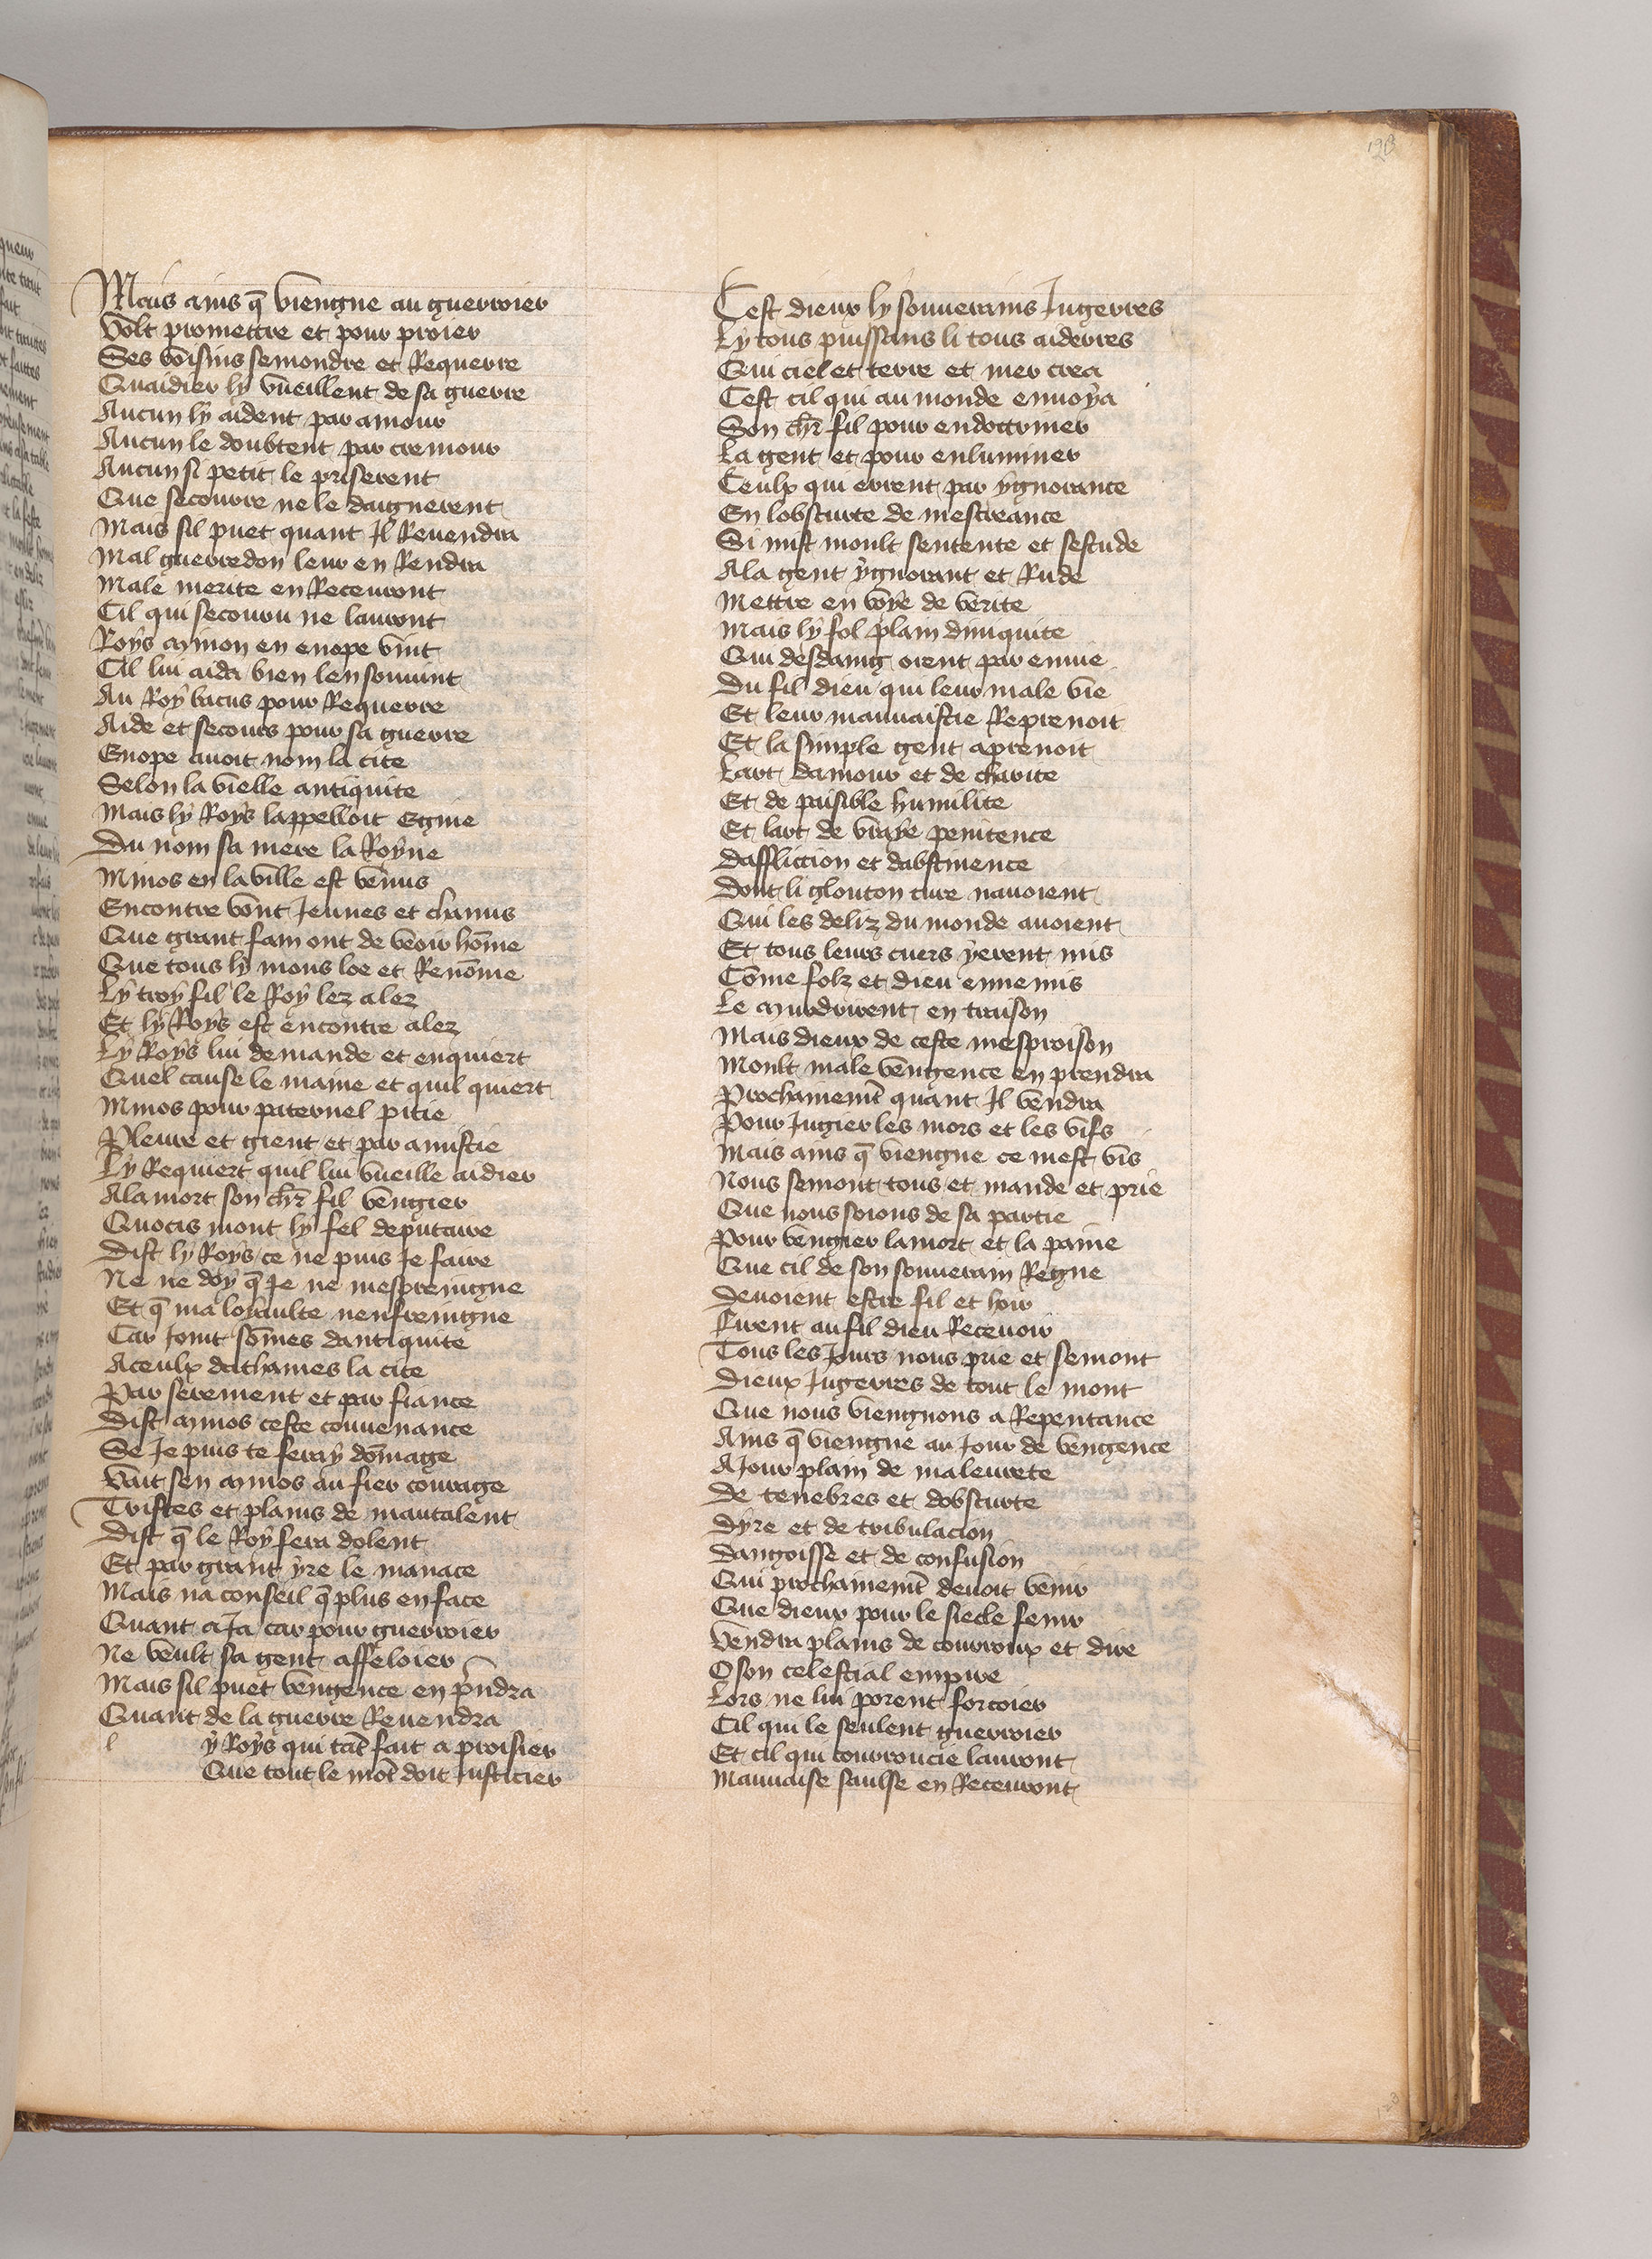 123
Mais ains q̄ viengne au guerroier
Volt promettre et pour proier
Ses voisins semondre et Requerre
Quaidier ly vueillent de sa guerre
Aucun ly aident par amour
Aucun le doubtent par cremour
Aucun si petit le priserent
Que secourre ne le daignerent
Mais sil puet quant Il Revendra
Mal guerredon leur en Rendra
Male merite en Recevront
Cil qui secouru ne lauront
Roys minon en enope vint
Cil lui aida bien len souvint
Au Roy bacus pour Requerre
Aide et secours pour sa guerre
Enope avoit nom la cite
Selon la vielle antiquite
Mais ly Roys lappelloit Egine
Du nom sa mere la Royne
Minos en la ville est venus
Encontre vont Jeunes et chanus
Que grant fain ont de veoir hōme
Que tous ly mons loe et Renōme
Ly troy fil le Roy lez alez
Et ly Roys est encontre alez
Ly Roys lui demande et enquiert
Quel cause le maine et quil quiert
Minos pour paternel pitie
Pleure et gient et par amistie
Ly Requiert quil lui vueille aidier
A la mort son ch̄r fil vengier
Quocis mont ly fel deputaire
Dist ly Roys ce ne puis Je faire
Ne ne doy q̄ Je ne mespreingne
Et q̄ ma loyaulte nenfreingne
Car Joint sōmes dantiquite
A ceulx dathaines la cite
Par serement et par fiance
Dist minos ceste convenance
Se Je puis te feray dōmage
Vait sen minos au fier courage
Tristes et plains de mautalent
Dist q̄ le Roy fera dolent
Et par grant yre le manace
Mais na conseil q̄ plus en face
Quant a Ja car pour guerroier
Ne veult sa gent affeloier
Mais sil puet vengence en p̄ndra
Quant de la guerre Revendra
l y Roys qui tāt fait a proisier
Que tout le mōt doit Justicier
Cest dieux ly souverains Jugerres
Ly tous puissans li tous aiderres
Qui ciel et terre et mer crea
Cest cil qui au monde envoya
Son ch̄r fil pour endoctriner
La gent et pour enluminer
Ceulx qui errent par ygnorance
En lobscurte de mescreance
Si mist moult sentente et sestude
A la gent ygnorant et Rude
Mettre en voye de verite
Mais ly fol plain diniquite
Qui desdaing oient par envie
Du fil dieu qui leur male vie
Et leur mauvaistie Reprenoit
Et la simple gent aprenoit
Lart damour et de charite
Et de paisible humilite
Et lart de vraye penitence
Daffliction et dabstinence
Dont li glouton cure navoient
Qui les deliz du monde avoient
Et tous leurs cuers yerent mis
Cōme folz et dieu ennemis
Le murdrirent en traison
Mais dieux de ceste mesproison
Moult male vengence en prendra
Prochainemēt quant Il vendra
Pour Jugier les mors et les vifs
Mais ains q̄ viengne ce mest vis
Nous semont tous et mande et prie
Que nous soions de sa partie
Pour vengier la mort et la paine
Que cil de son souverain Regne
Devoient estre fil et hoir
Firent au fil dieu Recevoir
Tous les Jours nous prie et semont
Dieux Jugerres de tout le mont
Que nous viengnons a Repentance
Ains q̄ viengne au Jour de vengence
A Jour plain de maleurete
De tenebres et dobscurte
Dyre et de tribulacion
Dangoisse et de confusion
Qui prochainemēt devoit venir
Que dieux pour le siecle fenir
Vendra plains de courroux et dire
O son celestial empire
Lors ne lui porent forcoier
Cil qui le seulent guerroier
Et cil qui courroucie lauront
Mauvaise saulse en Recevront
123